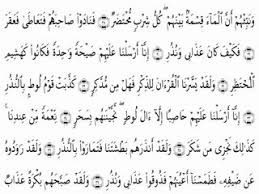 وَنَبِّئْهُمْ أَنَّ ٱلْمَآءَ قِسْمَةٌۢ بَيْنَهُمْ ۖ كُلُّ شِرْبٍ مُّحْتَضَرٌ ۝ فَنَادَوْا۟ صَاحِبَهُمْ فَتَعَاطَىٰ فَعَقَرَ ۝
فَكَيْفَ كَانَ عَذَابِى وَنُذُرِ ۝ إِنَّآ أَرْسَلْنَا عَلَيْهِمْ صَيْحَةً وَٰحِدَةً فَكَانُوا۟ كَهَشِيمِ
ٱلْمُحْتَظِرِ ۝ وَلَقَدْ يَسَّرْنَا ٱلْقُرْءَانَ لِلذِّكْرِ فَهَلْ مِن مُّدَّكِرٍ ۝ كَذَّبَتْ قَوْمُ لُوطٍۭ بِٱلنُّذُرِ ۝
إِنَّآ أَرْسَلْنَا عَلَيْهِمْ حَاصِبًا إِلَّآ ءَالَ لُوطٍ ۖ نَّجَّيْنَٰهُم بِسَحَرٍ ۝ نِّعْمَةً مِّنْ عِندِنَا ۚ
كَذَٰلِكَ نَجْزِى مَن شَكَرَ ۝ وَلَقَدْ أَنذَرَهُم بَطْشَتَنَا فَتَمَارَوْا۟ بِٱلنُّذُرِ ۝ وَلَقَدْ رَٰوَدُوهُ
عَن ضَيْفِهِۦ فَطَمَسْنَآ أَعْيُنَهُمْ فَذُوقُوا۟ عَذَابِى وَنُذُرِ ۝ وَلَقَدْ صَبَّحَهُم بُكْرَةً عَذَابٌ